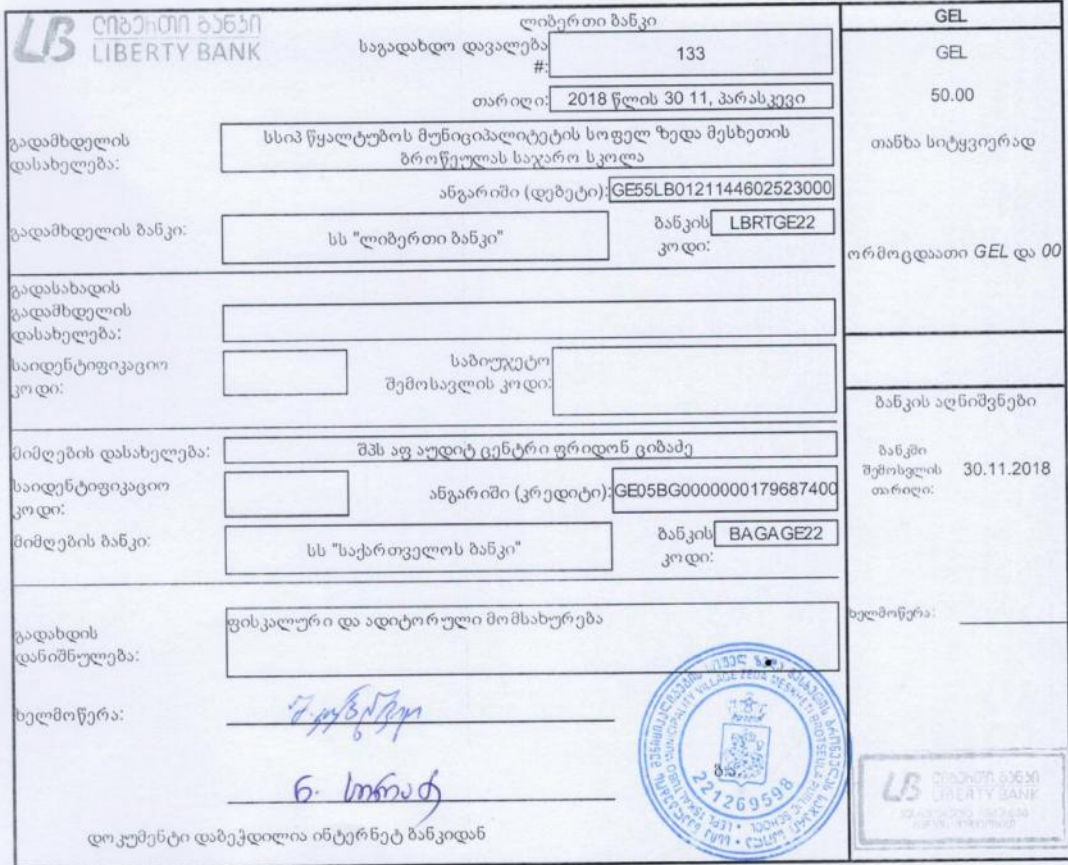 ლიბერთი ბანკი
LIBERTY BANK
ლიბერთი ბანკი
საგადახდო დავალება #: 133
თარიღი: 2018 წლის 30 11, პარასკევი
გადამხდელის დასახელება: სსიპ წყალტუბოს მუნიციპალიტეტის სოფელ ზედა მესხეთის
ბროწეულას საჯარო სკოლა
ანგარიში (დებეტი): GE55LB0121144602523000
გადამხდელის ბანკი: სს "ლიბერთი ბანკი" ბანკის კოდი: LBRTGE22
გადასახადის
გადამხდელის
დასახელება:
საიდენტიფიკაციო კოდი: საბიუჯეტო შემოსავლის კოდი:
მიმღების დასახელება: შპს აფ აუდიტ ცენტრი ფრიდონ ციბაძე
საიდენტიფიკაციო კოდი: ანგარიში (კრედიტი): GE05BG0000000179687400
მიმღების ბანკი: სს "საქართველოს ბანკი" ბანკის კოდი: BAGAGE22
გადახდის დანიშნულება: ფისკალური და ადიტორული მომსახურება
ხელმოწერა:
ბ.ა.
221269598
დოკუმენტი დაბეჭდილია ინტერნეტ ბანკიდან
GEL
GEL
50.00
თანხა სიტყვიერად
ორმოცდაათი GEL და 00
ბანკის აღნიშვნები
ბანკში
შემოსვლის 30.11.2018
თარიღი:
ხელმოწერა:
LIBERTY BANK